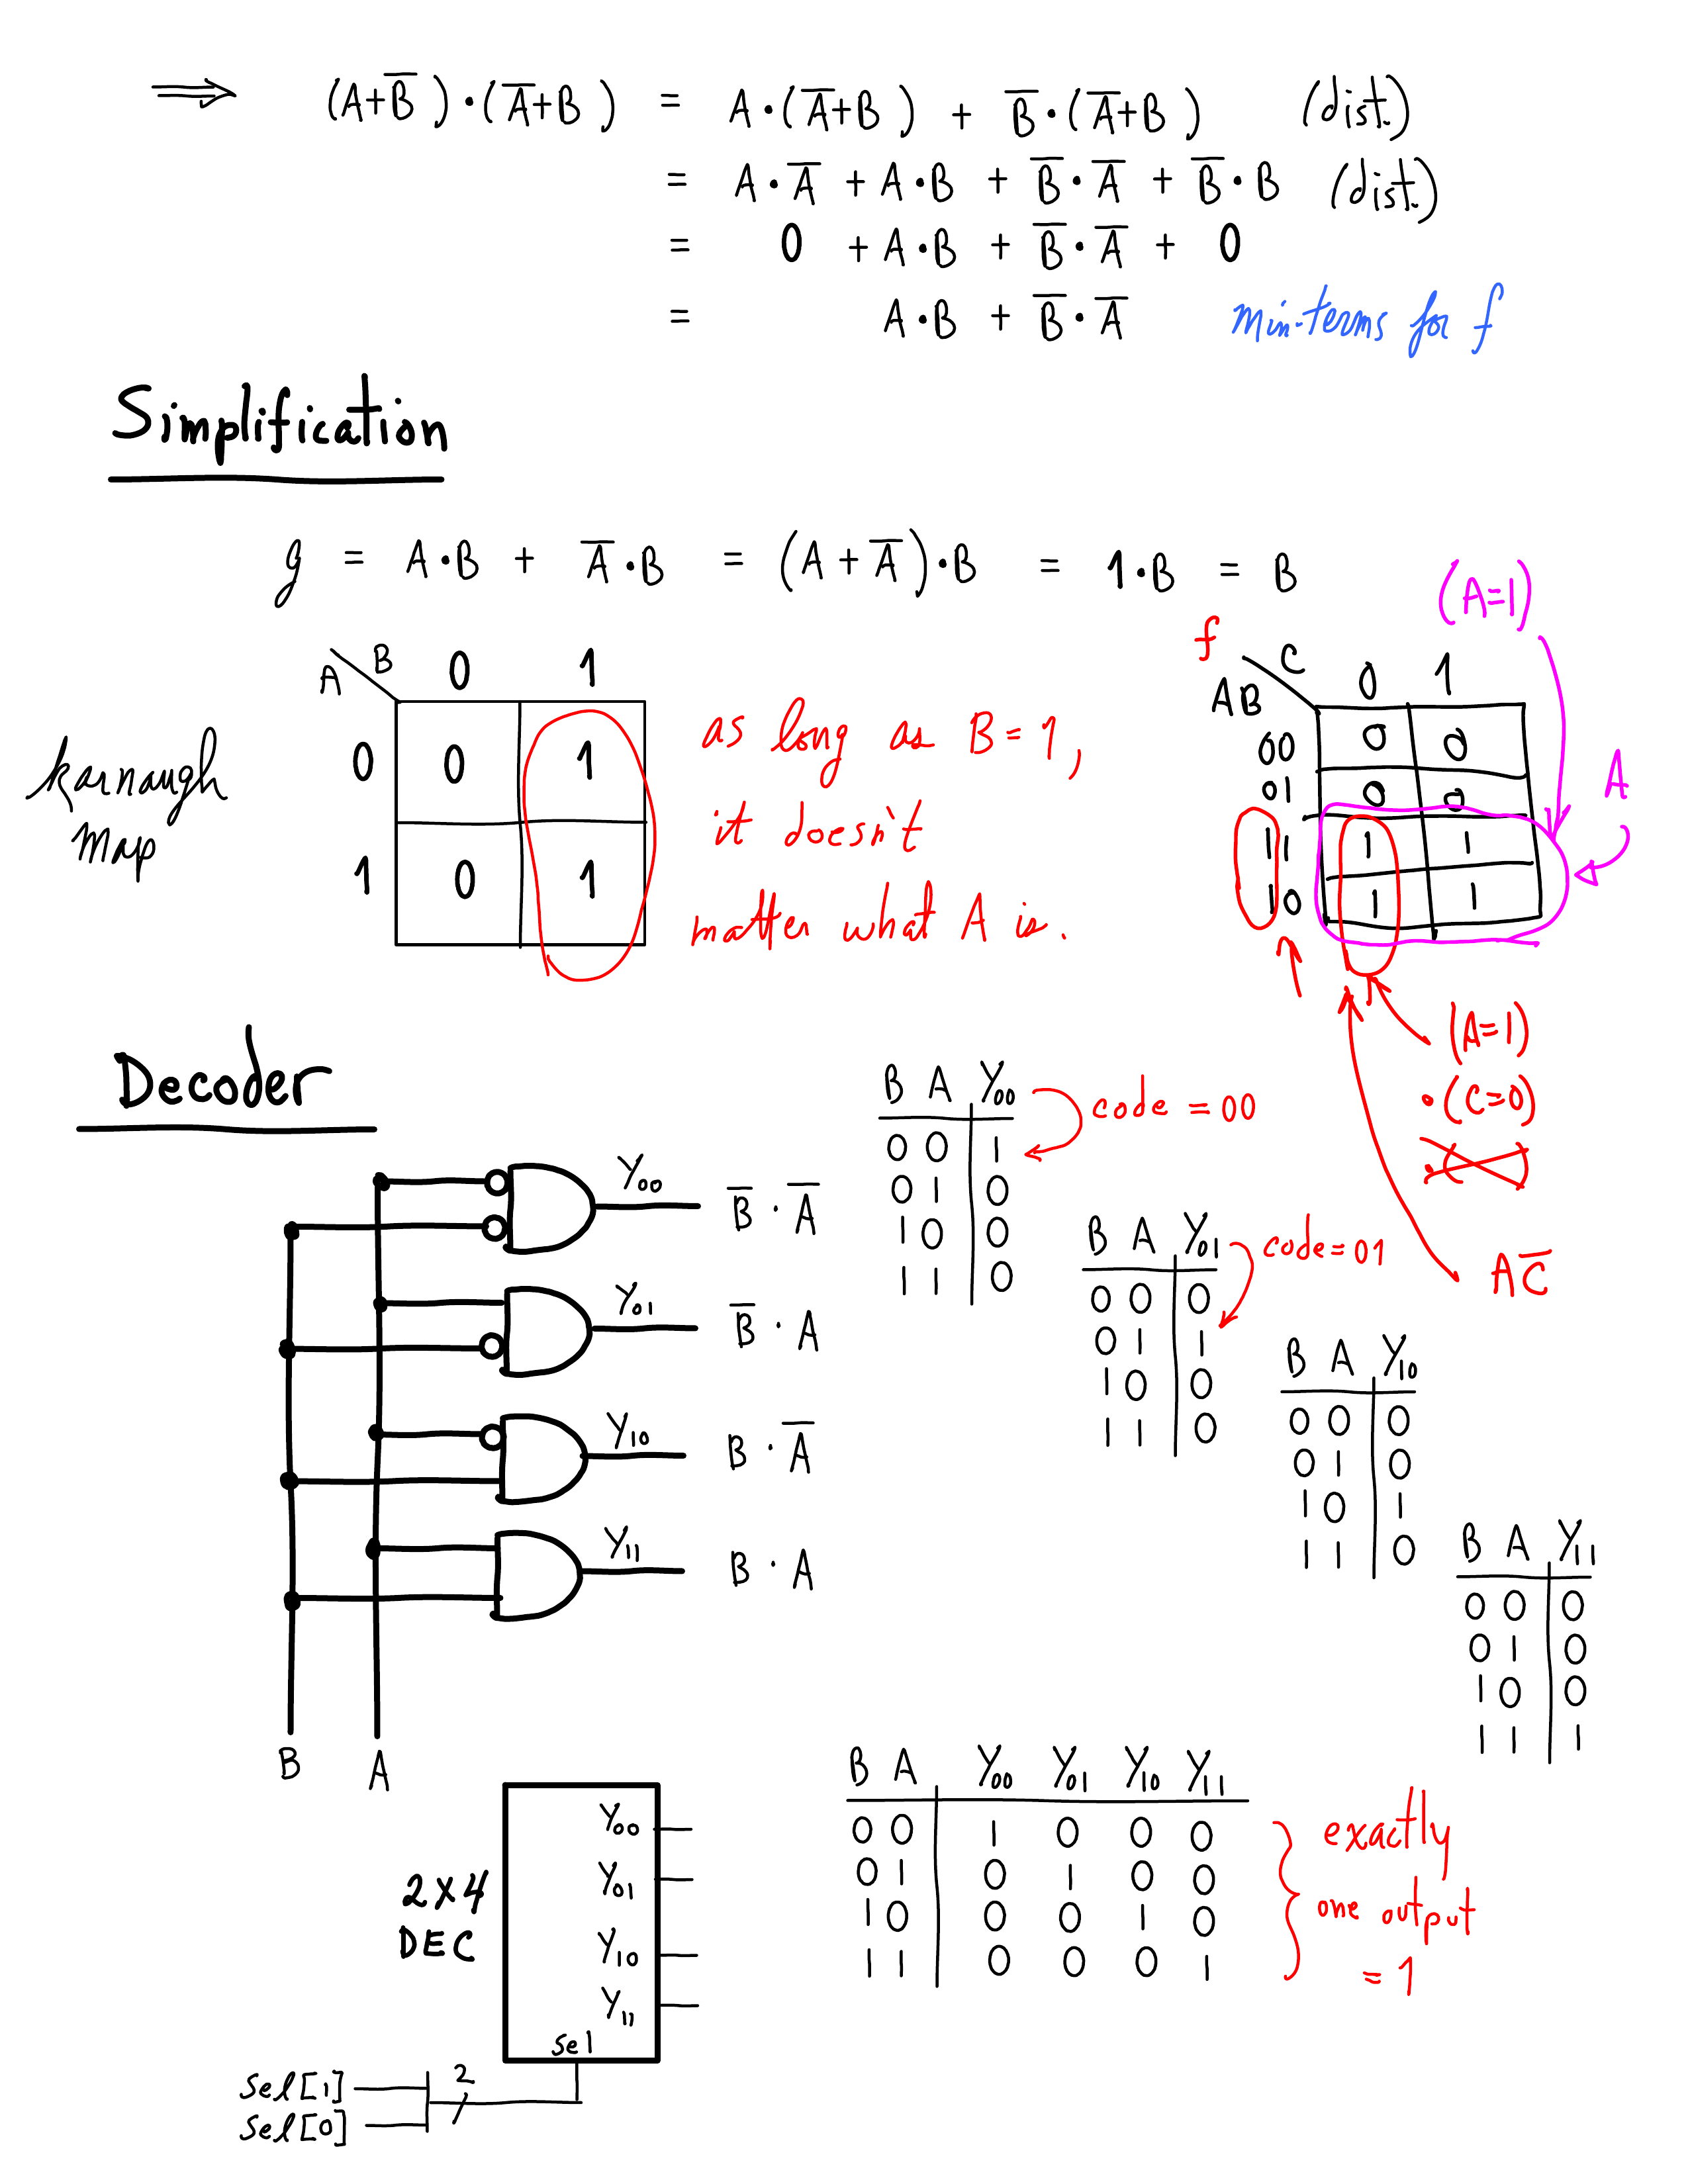 ⟹ (A+B̅)·(A̅+B) = A·(A̅+B) + B̅·(A̅+B) (dist.)
= A·A̅ + A·B + B̅·A̅ + B̅·B (dist.)
= 0 + A·B + B̅·A̅ + 0
= A·B + B̅·A̅ min-terms for f
Simplification
g = A·B + A̅·B = (A + A̅)·B = 1·B = B
Karnaugh
Map
A B 0 1
0 0 1
1 0 1
as long as B = 1,
it doesn't
matter what A is.
f
(A=1)
AB C 0 1
00 0 0
01 0 0
11 1 1
10 1 1
A
(A=1)
·(C=0)
·( )
AC̅
Decoder
Y00 B̅ · A̅
Y01 B̅ · A
Y10 B · A̅
Y11 B · A
B A
B A Y00
0 0 1
0 1 0
1 0 0
1 1 0
code = 00
B A Y01
0 0 0
0 1 1
1 0 0
1 1 0
code = 01
B A Y10
0 0 0
0 1 0
1 0 1
1 1 0
B A Y11
0 0 0
0 1 0
1 0 0
1 1 1
2X4
DEC
Y00
Y01
Y10
Y11
Sel
2
Sel[1]
Sel[0]
B A Y00 Y01 Y10 Y11
0 0 1 0 0 0
0 1 0 1 0 0
1 0 0 0 1 0
1 1 0 0 0 1
exactly
one output
= 1